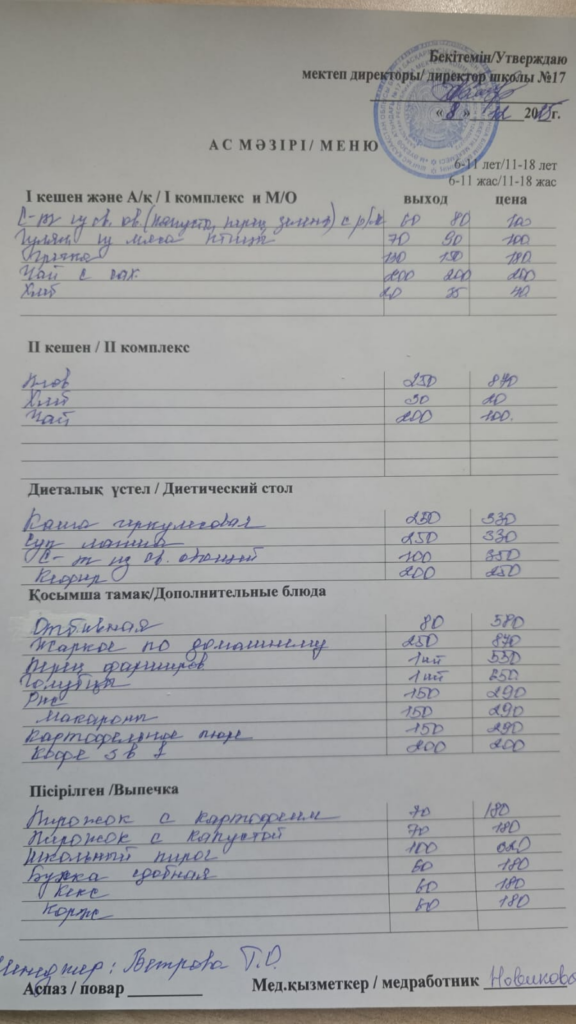 Бекітемін/Утверждаю
мектеп директоры/ директор школы №17
« 8 » 20 г.
АС МӘЗІРІ/ МЕНЮ
6-11 лет/11-18 лет
6-11 жас/11-18 жас
І кешен және А/қ / І комплекс и М/О выход цена
С-т из св. ов. (капуста, перец зелень) с р/м 60 80
Гуляш из мяса птицы 70 90 100
Гречка 130 150 180
Чай с сах 200 200 200
Хлеб 20 35 40
ІІ кешен / ІІ комплекс
Плов 250 870
Хлеб 30 20
Чай 200 100.
Диеталық үстел / Диетический стол
Каша геркулесовая 250 330
Суп лапша 250 330
С-т из св. овощей 100 350
Кефир 200 250
Қосымша тамақ/Дополнительные блюда
Отбивная 80 580
Жаркое по домашнему 250 870
Перец фарширов 1 шт 550
Голубцы 1 шт 350
Рис 150 290
Макароны 150 290
Картофельное пюре 150 290
Кофе 3 в 1 200 200
Пісірілген /Выпечка
Пирожок с картофелем 70 180
Пирожок с капустой 70 180
Школьный пирог 100
Булка сдобная 60 180
Кекс 60 180
Корж 60 180
Менеджер: Ветрова Т.О.
Аспаз / повар Мед.қызметкер / медработник Новикова